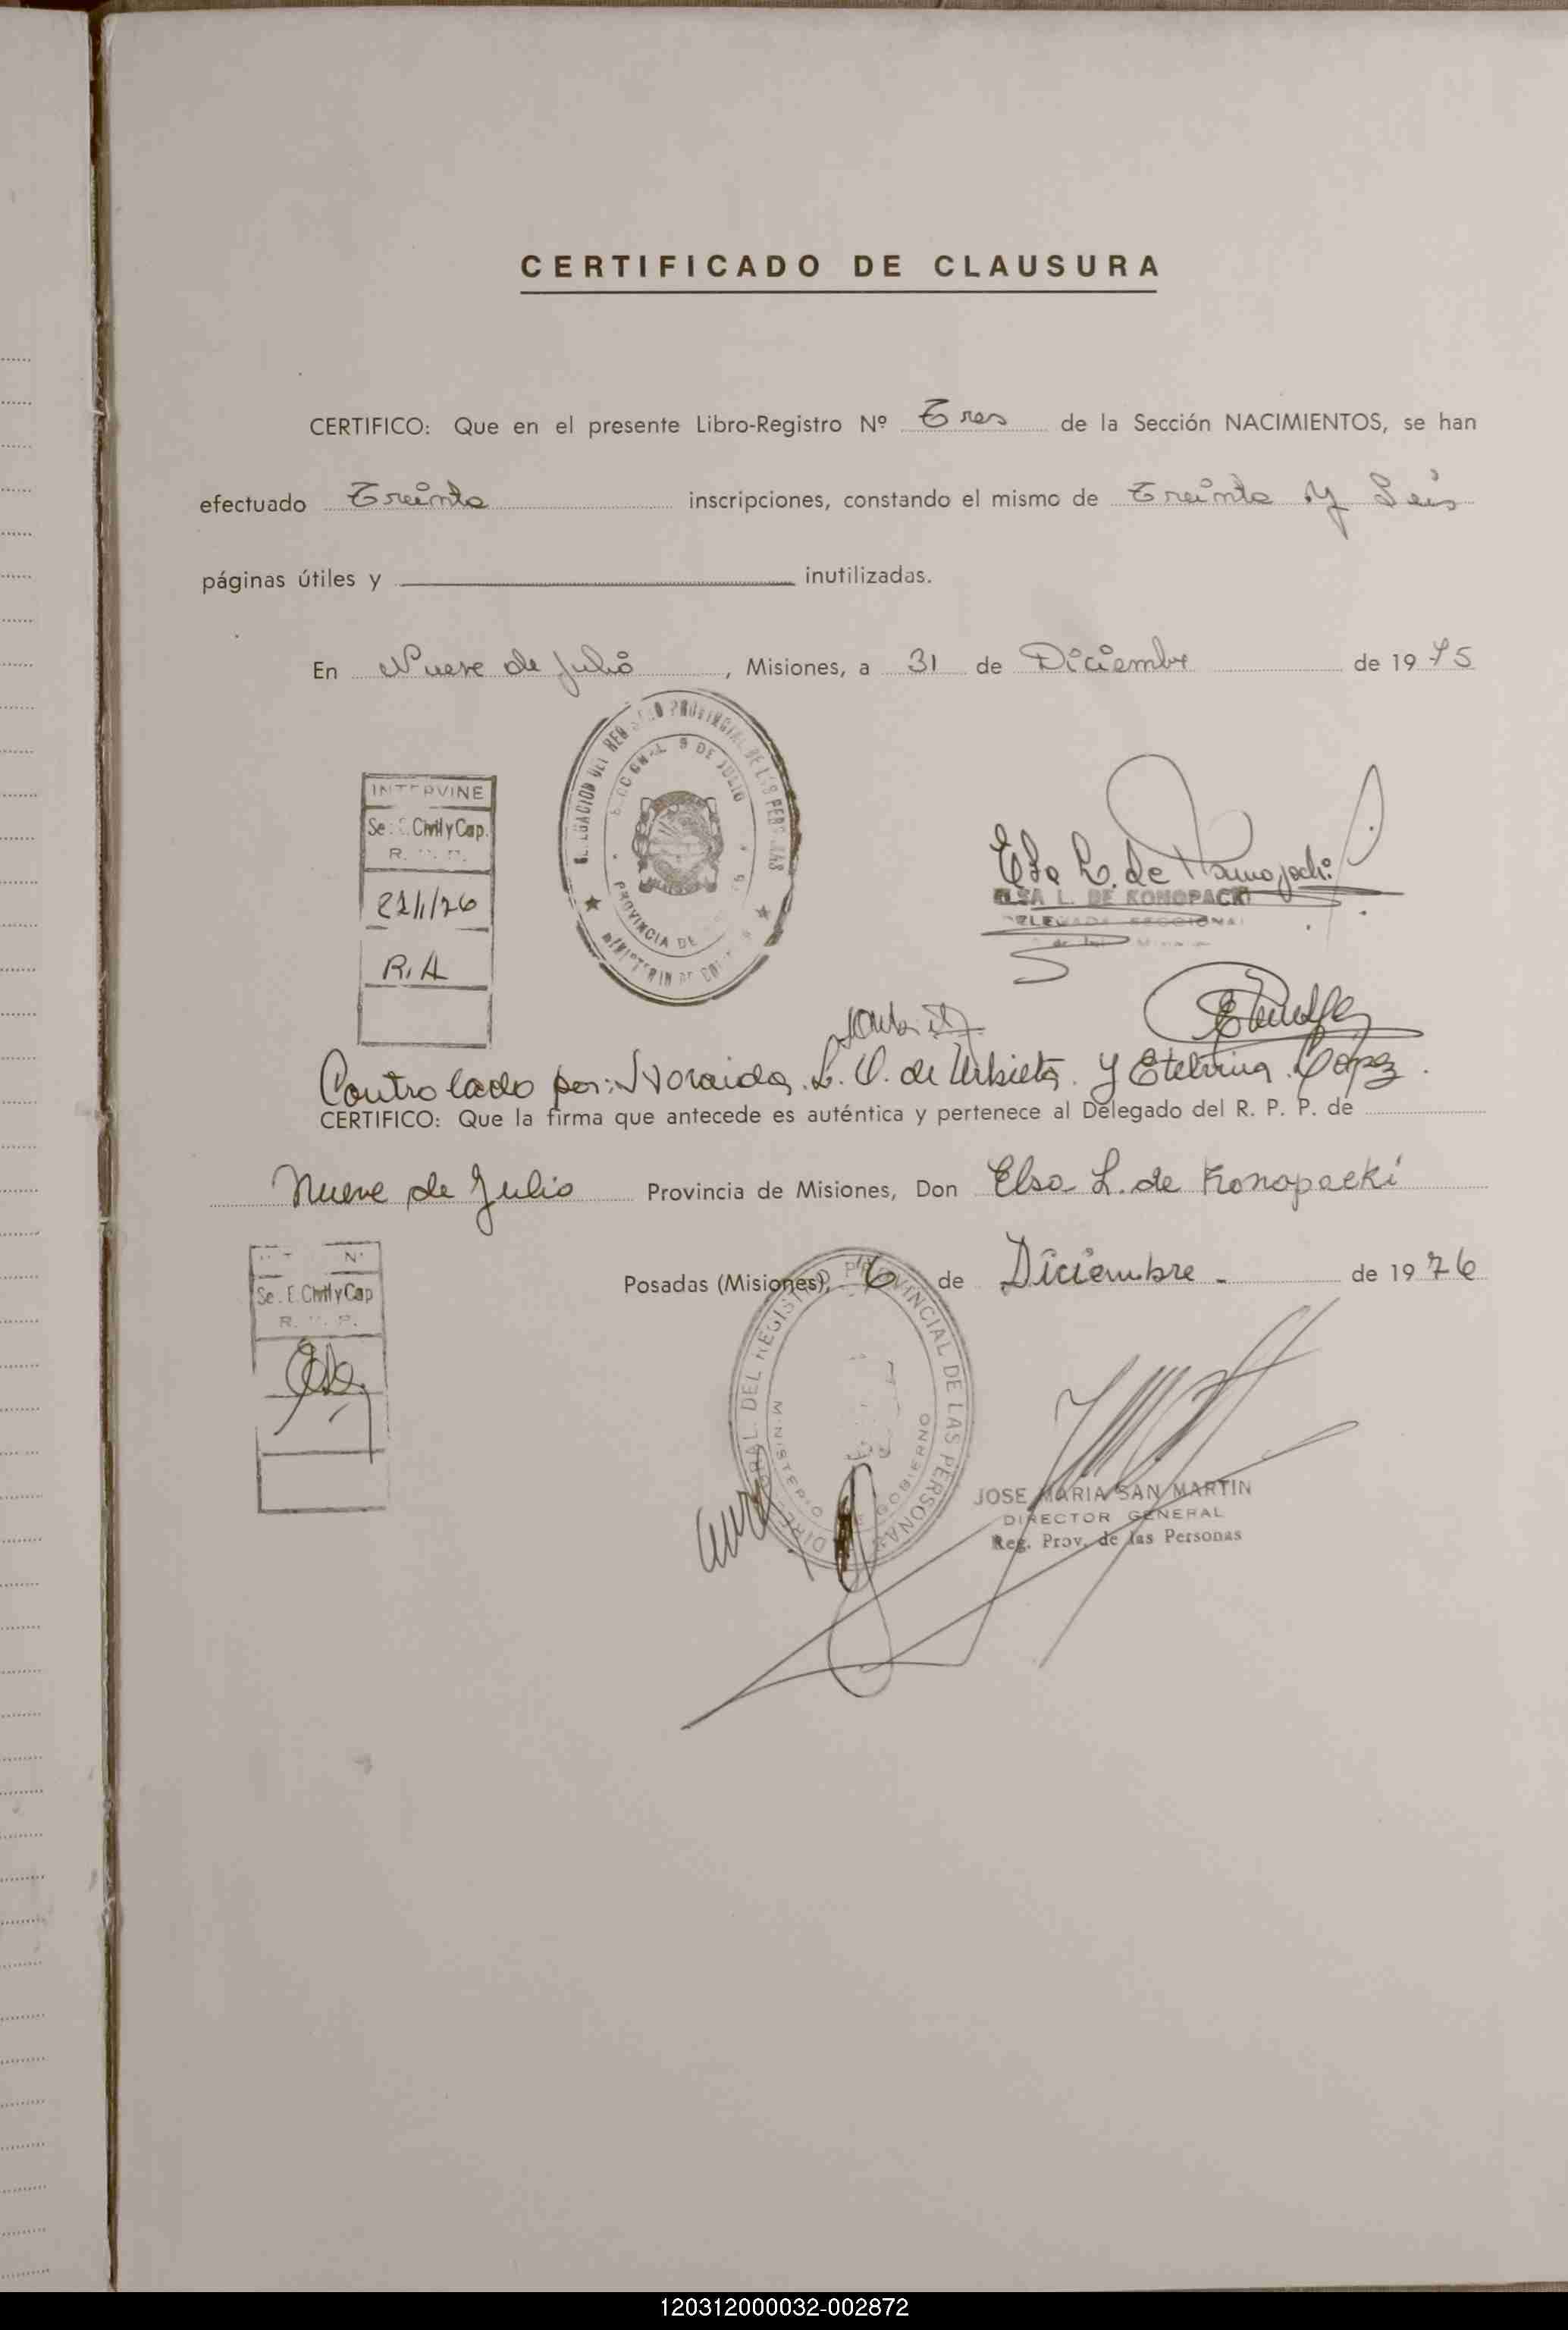 CERTIFICADO DE CLAUSURA
CERTIFICO: Que en el presente Libro-Registro Nº Tres de la Sección NACIMIENTOS, se han
efectuado Treinta inscripciones, constando el mismo de Treinta y Seis
páginas útiles y inutilizadas.
En Nueve de Julio, Misiones, a 31 de Diciembre de 1975
INTERVINE
Civil y Cap.
21/1/76
R.A
PROVINCIAL DE LAS
9 DE JULIO
PROVINCIA DE
Elsa L. de Konopacki
ELSA L. DE KONOPACKI
Controlado por: L. O. de Urbieta y Etelvina López.
CERTIFICO: Que la firma que antecede es auténtica y pertenece al Delegado del R. P. P. de
Nueve de Julio Provincia de Misiones, Don Elsa L. de Konopacki
Posadas (Misiones), 6 de Diciembre - de 1976
Civil y Cap
DEL REGISTRO PROVINCIAL DE LAS PERSONAS
MINISTERIO GOBIERNO
JOSE MARIA SAN MARTIN
DIRECTOR GENERAL
Reg. Prov. de las Personas
120312000032-002872